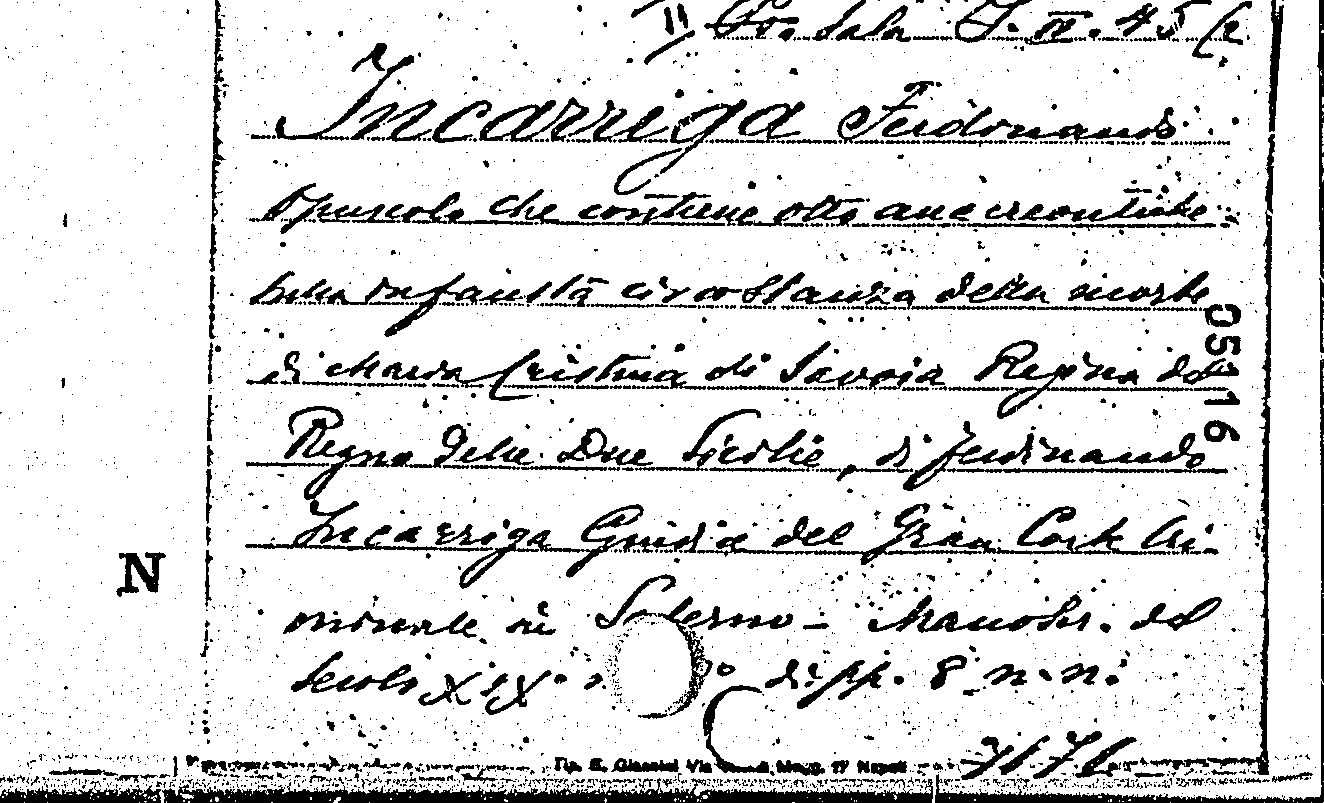 Sala I. IV. 45 (2
Incarriga Ferdinando
Opuscolo che contiene otto anacreontiche
sulla infausta circostanza della morte
di Maria Cristina di Savoia Regina del
Regno delle Due Sicilie, di Ferdinando
Incarriga Giudice del Gran Corte Cri-
minale in Salerno - Manoscr. del
Secolo XIX° di pp. 8 n. n.
05116
N
Tip. Via Napoli